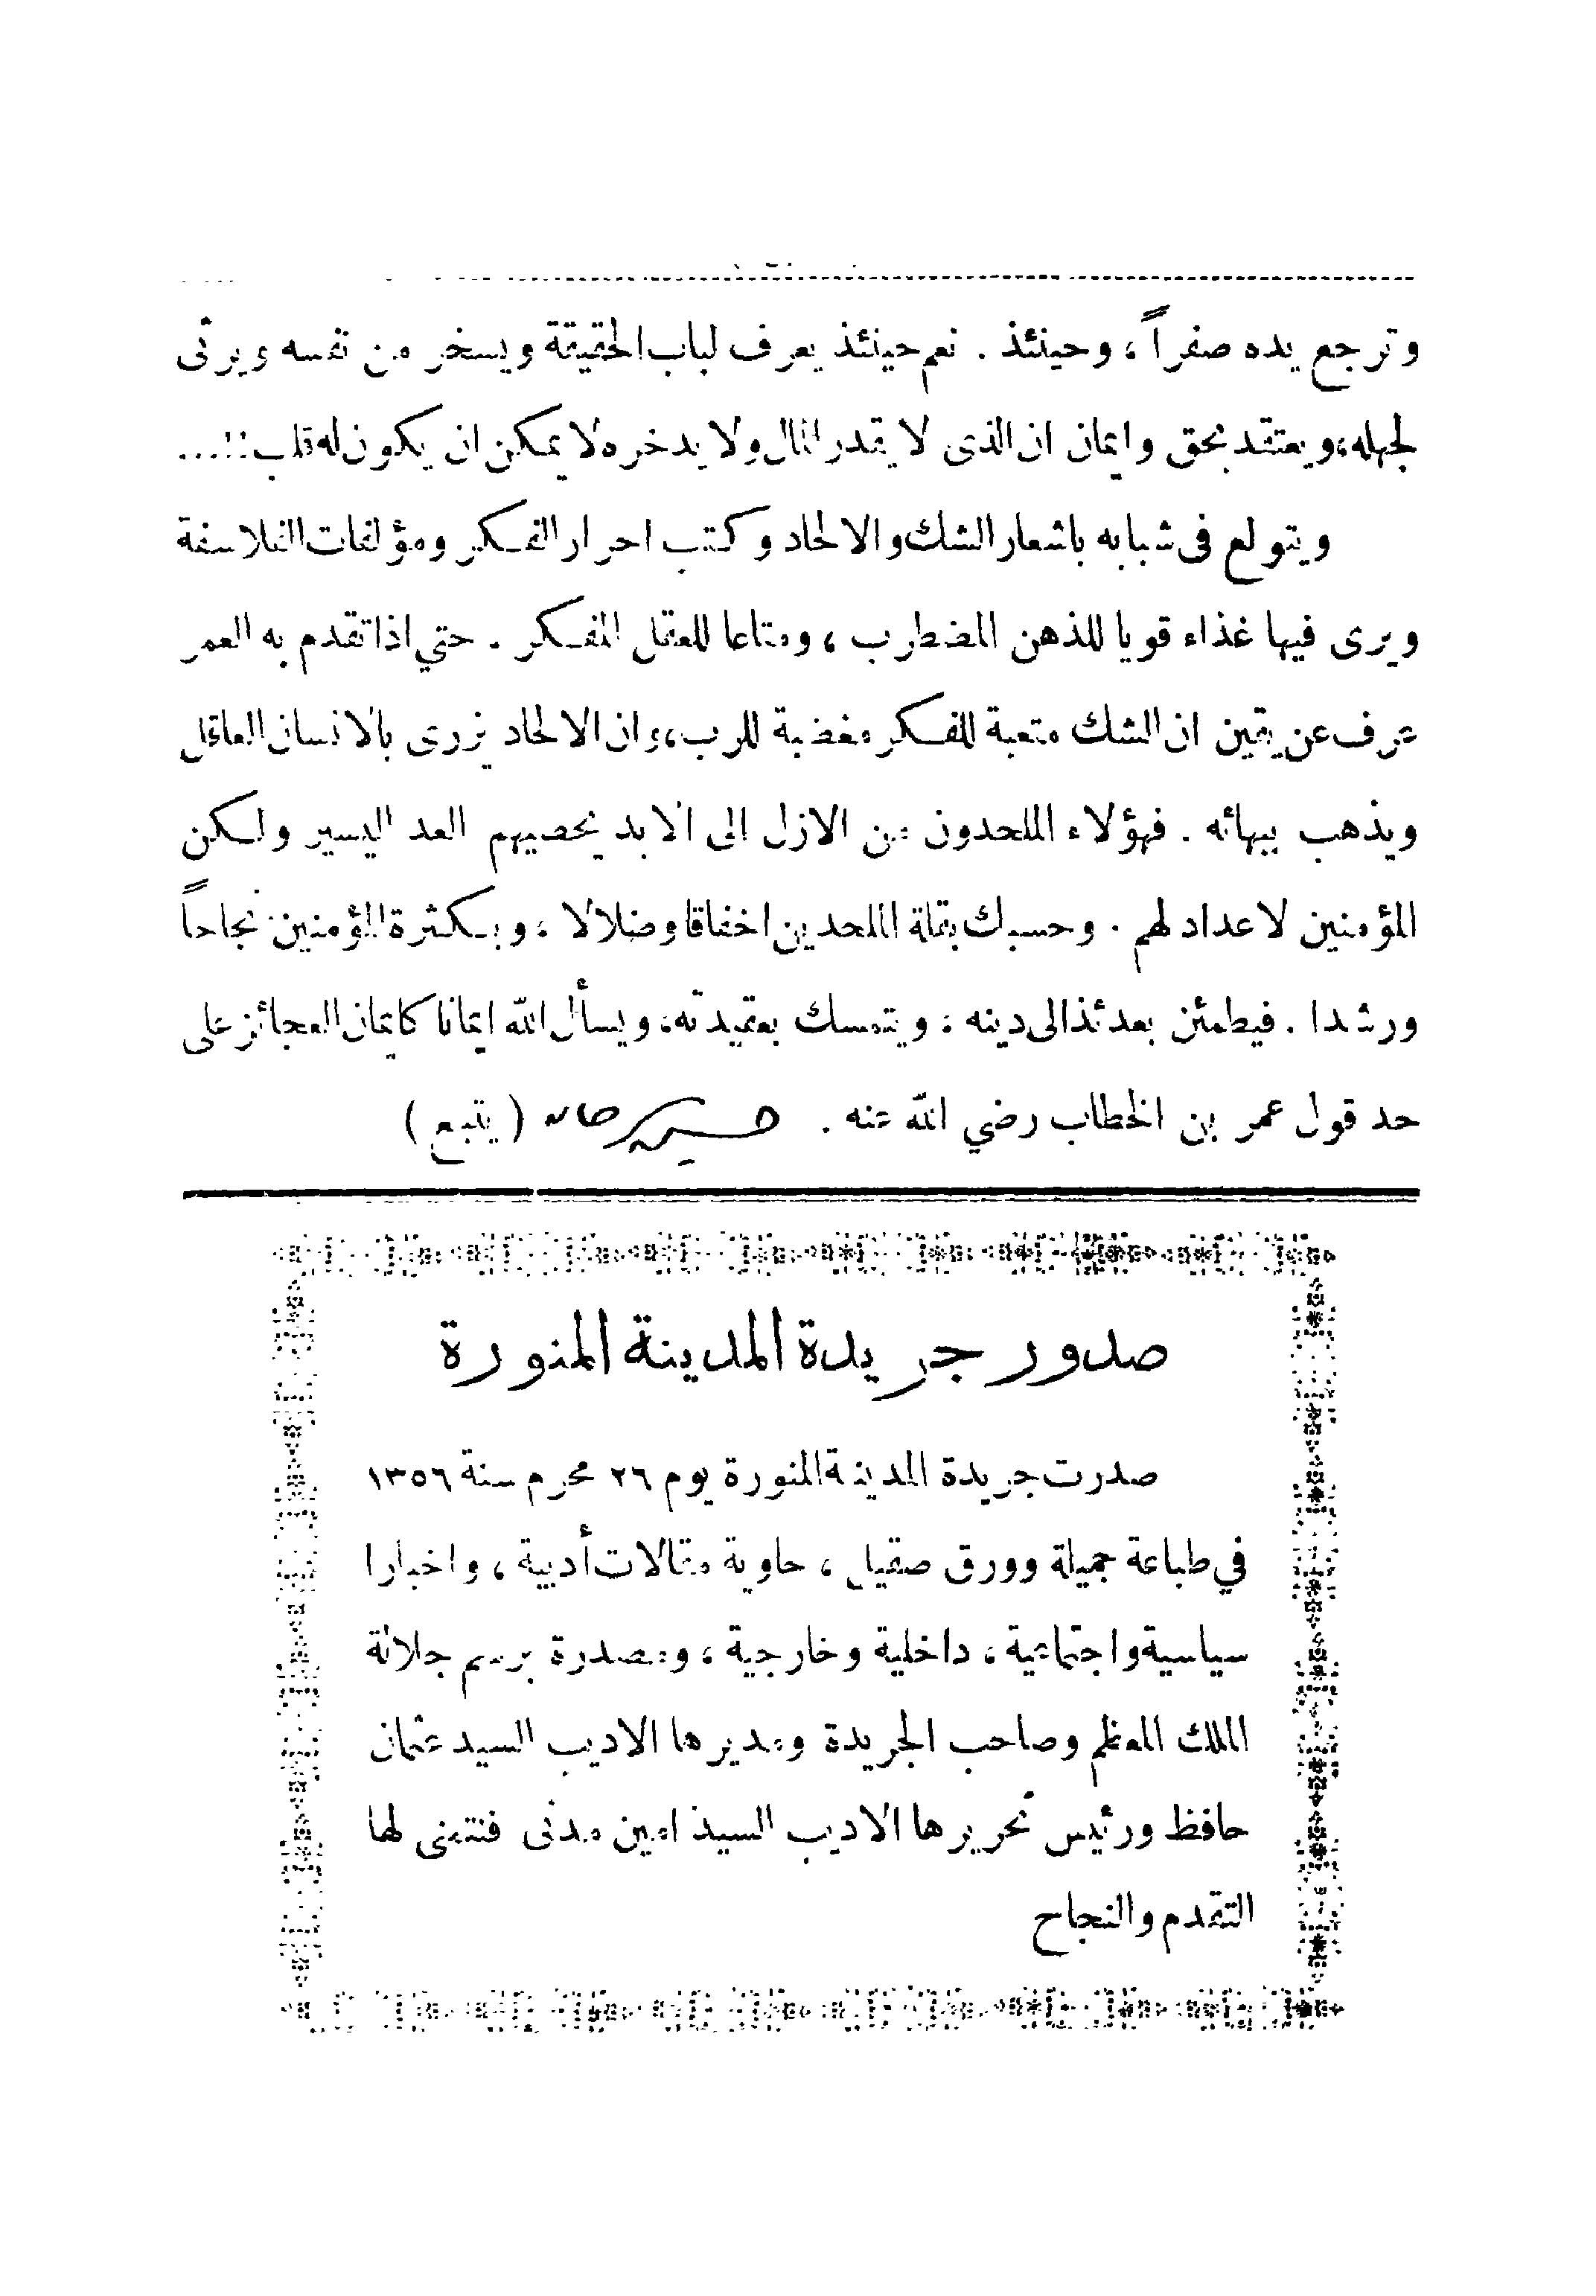 وترجع يده صفراً، وحينئذ . نعم حينئذ يعرف لباب الحقيقة ويسخر من نفسه ويرثى
لجهله، ويعتقد بحق وايمان ان الذى لا يقدر المال ولا يدخره لا يمكن ان يكون له قلب!!...
ويتولع فى شبابه باشعار الشك والالحاد وكتب احرار الفكر ومؤلفات الفلاسفة
ويرى فيها غذاء قويا للذهن المضطرب، ومتاعا للعقل المفكر . حتي اذا تقدم به العمر
عرف عن يقين ان الشك متعبة للفكر مغضبة للرب، وان الالحاد يزرى بالانسان العاقل
ويذهب ببهائه . فهؤلاء الملحدون من الازل الى الابد يحصيهم العد اليسير ولكن
المؤمنين لا عداد لهم . وحسبك بقلة الملحدين اخفاقا وضلالا، وبكثرة المؤمنين نجاحاً
ورشدا . فيطمئن بعدئذ الى دينه، ويتمسك بعقيدته، ويسأل الله ايمانا كايمان العجائز على
حد قول عمر بن الخطاب رضي الله عنه . (يتبع)
صدور جريدة المدينة المنورة
صدرت جريدة المدينة المنورة يوم ٢٦ محرم سنة ١٣٥٦
في طباعة جميلة وورق صقيل، حاوية مقالات أدبية، واخبارا
سياسية واجتماعية، داخلية وخارجية، ومصدرة برسم جلالة
الملك المعظم وصاحب الجريدة ومديرها الاديب السيد عثمان
حافظ ورئيس تحريرها الاديب السيد امين مدنى فنتمنى لها
التقدم والنجاح